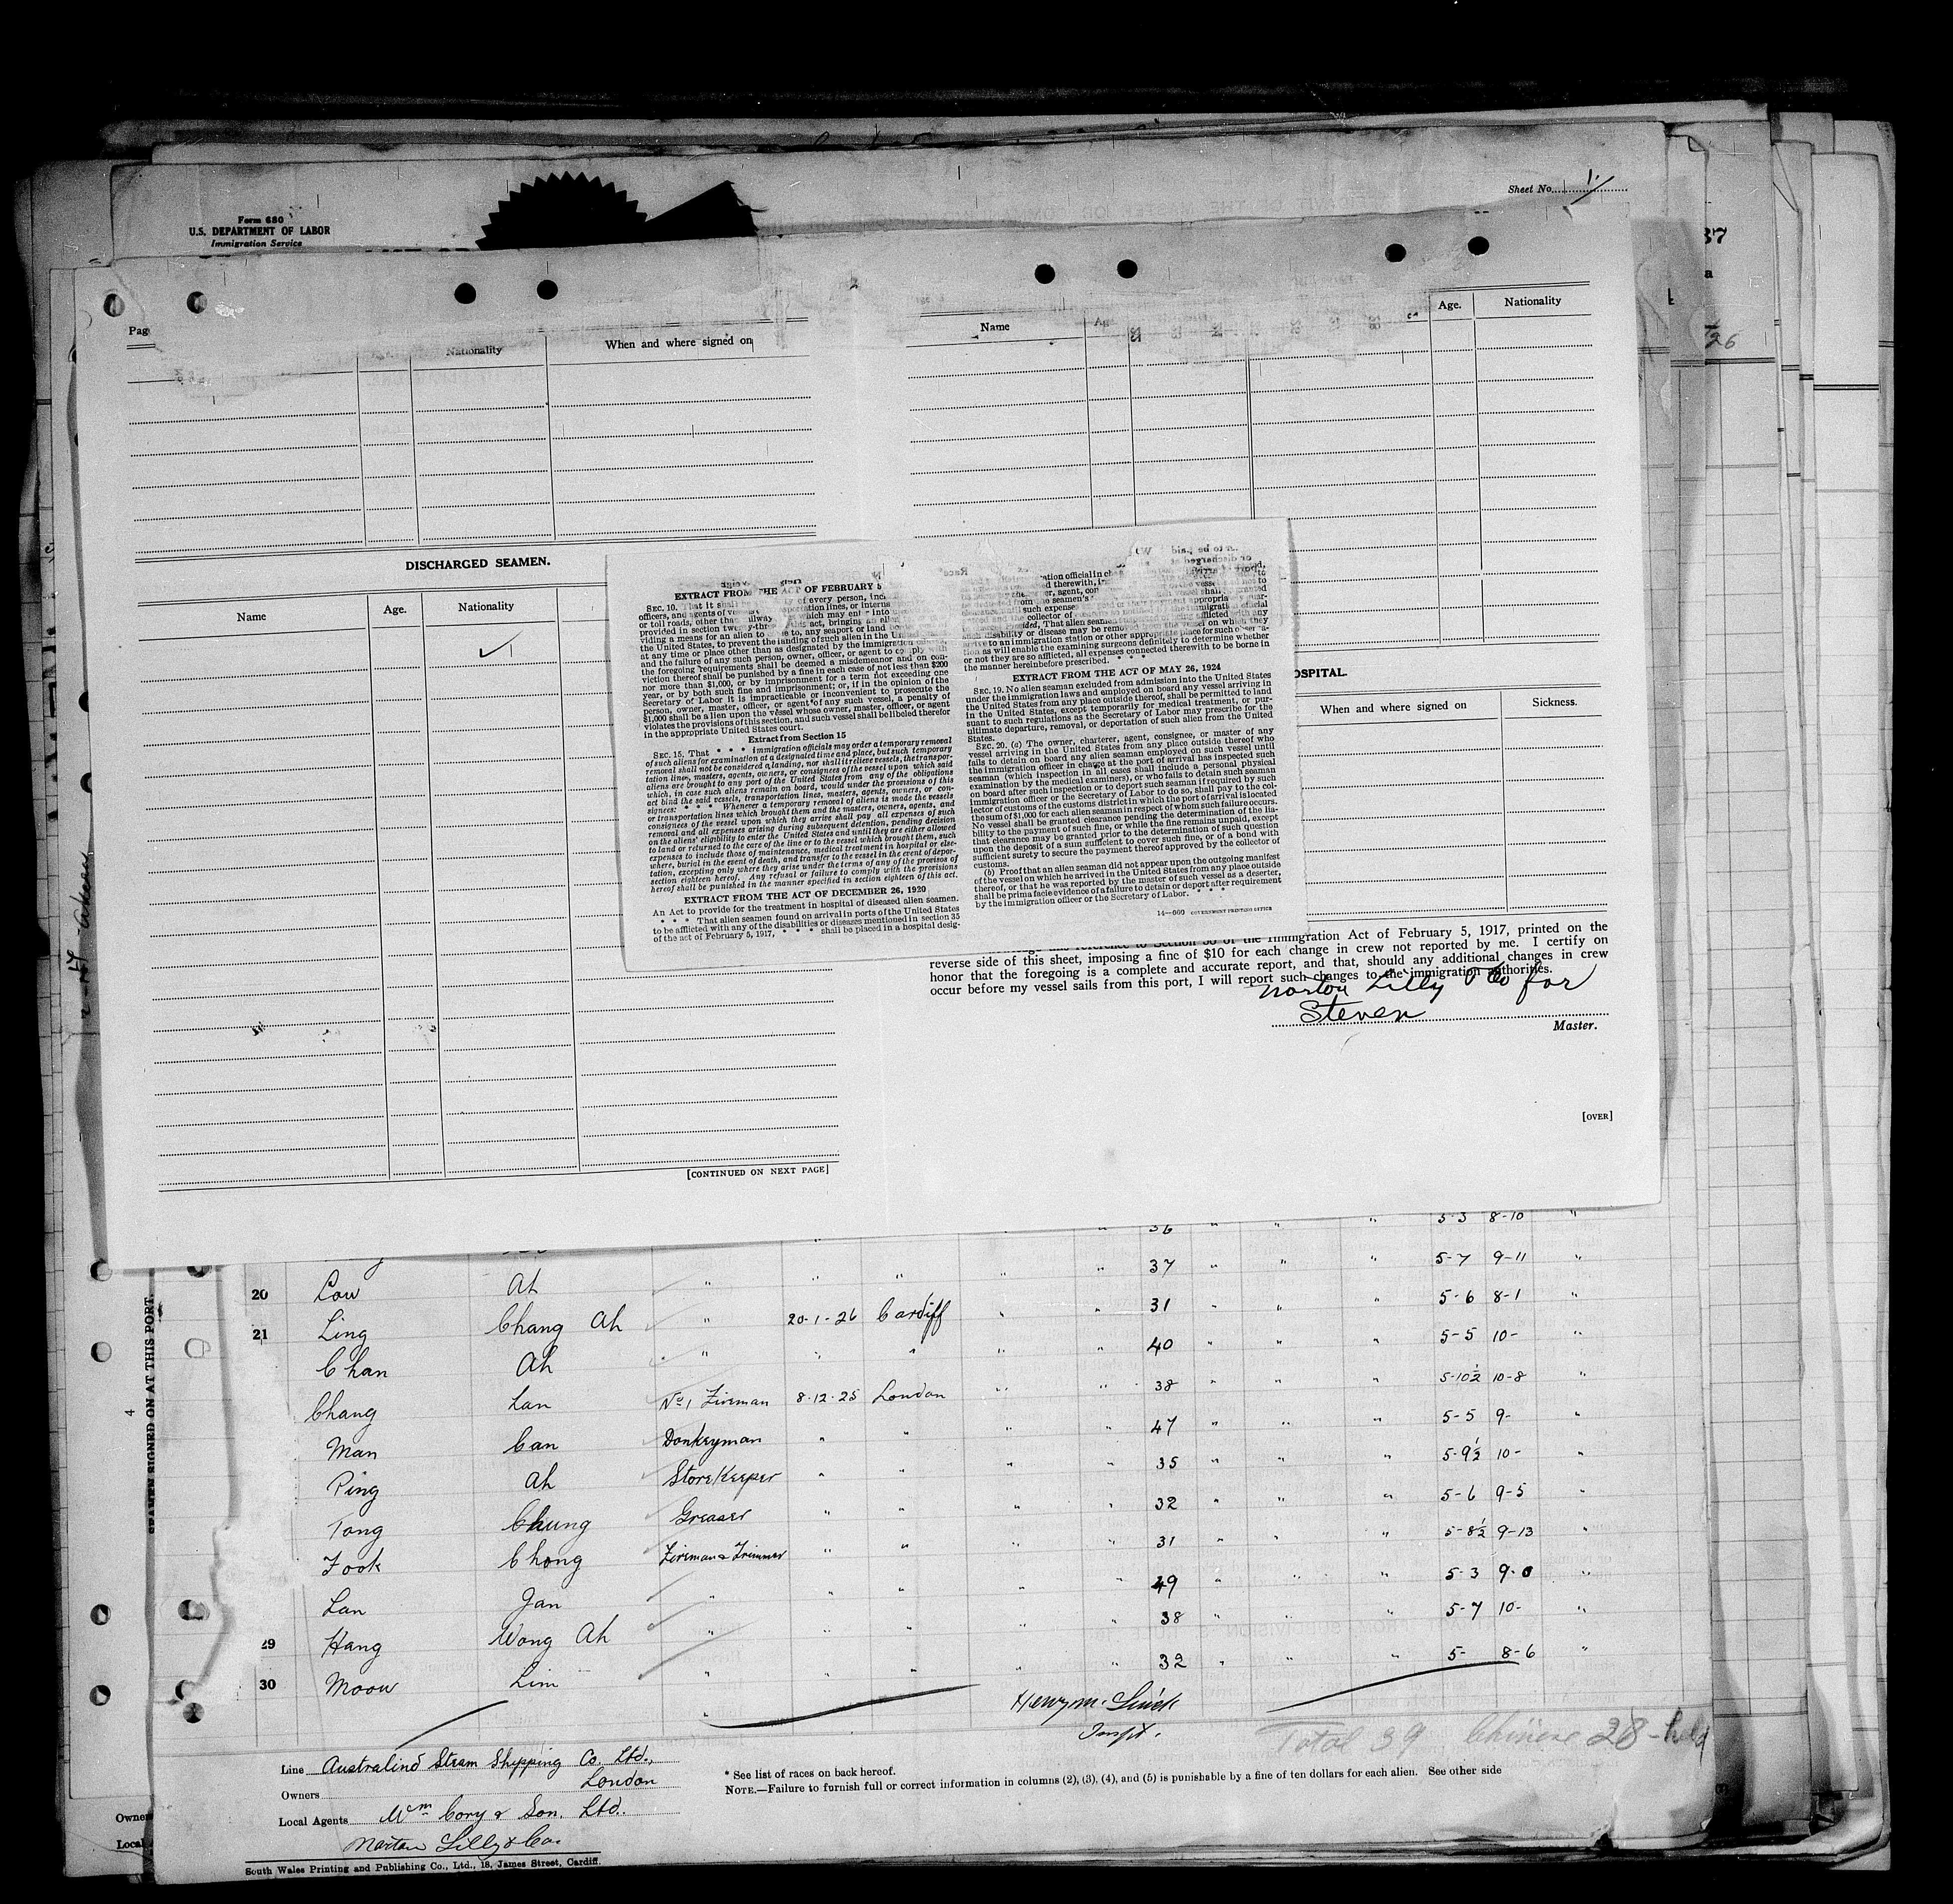 Sheet No. 1
Form 680
U.S. DEPARTMENT OF LABOR
Immigration Service
37
26
Pag
Nationality
When and where signed on
Name
Age.
Nationality
DISCHARGED SEAMEN.
Name
Age.
Nationality
[CONTINUED ON NEXT PAGE]
EXTRACT FROM THE ACT OF FEBRUARY 5
officers, and agents of
or toll roads, other than
provided in section twenty-three
viding a means for an alien to
the United States, to prevent the landing of such alien in the
at any time or place other than as designated by the immigration
and the failure of any such person, owner, officer, or agent to comply with
the foregoing requirements shall be deemed a misdemeanor and on con-
viction thereof shall be punished by a fine in each case of not less than $200
nor more than $1,000, or by imprisonment for a term not exceeding one
year, or by both such fine and imprisonment; or, if in the opinion of the
Secretary of Labor it is impracticable or inconvenient to prosecute the
person, owner, master, officer, or agent of any such vessel, a penalty of
$1,000 shall be a lien upon the vessel whose owner, master, officer, or agent
violates the provisions of this section, and such vessel shall be libeled therefor
in the appropriate United States court.
Extract from Section 15
SEC. 15. That * * * immigration officials may order a temporary removal
of such aliens for examination at a designated time and place, but such temporary
removal shall not be considered a landing, nor shall it relieve vessels, the transpor-
tation lines, masters, agents, owners, or consignees of the vessel upon which said
aliens are brought to any port of the United States from any of the obligations
which, in case such aliens remain on board, would under the provisions of this
act bind the said vessels, transportation lines, masters, agents, owners, or con-
signees: * * * Whenever a temporary removal of aliens is made the vessels
or transportation lines which brought them and the masters, owners, agents, and
consignees of the vessel upon which they arrive shall pay all expenses of such
removal and all expenses arising during subsequent detention, pending decision
on the aliens' eligibility to enter the United States and until they are either allowed
to land or returned to the care of the line or to the vessel which brought them, such
expenses to include those of maintenance, medical treatment in hospital or else-
where, burial in the event of death, and transfer to the vessel in the event of depor-
tation, excepting only where they arise under the terms of any of the provisos of
section eighteen hereof. Any refusal or failure to comply with the provisions
hereof shall be punished in the manner specified in section eighteen of this act.
EXTRACT FROM THE ACT OF DECEMBER 26, 1920
An Act to provide for the treatment in hospital of diseased alien seamen.
* * * That alien seamen found on arrival in ports of the United States
to be afflicted with any of the disabilities or diseases mentioned in section 35
of the act of February 5, 1917, * * * shall be placed in a hospital desig-
such disability or disease may be removed from the vessel on which they
arrive to an immigration station or other appropriate place for such observa-
tion as will enable the examining surgeons definitely to determine whether
or not they are so afflicted, all expenses connected therewith to be borne in
the manner hereinbefore prescribed. * * *
EXTRACT FROM THE ACT OF MAY 26, 1924
SEC. 19. No alien seaman excluded from admission into the United States
under the immigration laws and employed on board any vessel arriving in
the United States from any place outside thereof, shall be permitted to land
in the United States, except temporarily for medical treatment, or pur-
suant to such regulations as the Secretary of Labor may prescribe for the
ultimate departure, removal, or deportation of such alien from the United
States.
SEC. 20. (a) The owner, charterer, agent, consignee, or master of any
vessel arriving in the United States from any place outside thereof who
fails to detain on board any alien seaman employed on such vessel until
the immigration officer in charge at the port of arrival has inspected such
seaman (which inspection in all cases shall include a personal physical
examination by the medical examiners), or who fails to detain such seaman
on board after such inspection or to deport such seaman if required by such
immigration officer or the Secretary of Labor to do so, shall pay to the col-
lector of customs of the customs district in which the port of arrival is located
the sum of $1,000 for each alien seaman in respect of whom such failure occurs.
No vessel shall be granted clearance pending the determination of the lia-
bility to the payment of such fine, or while the fine remains unpaid, except
that clearance may be granted prior to the determination of such question
upon the deposit of a sum sufficient to cover such fine, or of a bond with
sufficient surety to secure the payment thereof approved by the collector of
customs.
(b) Proof that an alien seaman did not appear upon the outgoing manifest
of the vessel on which he arrived in the United States from any place outside
thereof, or that he was reported by the master of such vessel as a deserter,
shall be prima facie evidence of a failure to detain or deport after requirement
by the immigration officer or the Secretary of Labor. * * *
14—600 GOVERNMENT PRINTING OFFICE
OSPITAL.
When and where signed on
Sickness.
reference to Section 36 of the Immigration Act of February 5, 1917, printed on the
reverse side of this sheet, imposing a fine of $10 for each change in crew not reported by me. I certify on
honor that the foregoing is a complete and accurate report, and that, should any additional changes in crew
occur before my vessel sails from this port, I will report such changes to the immigration authorities.
Norton Lilly & Co for
Steven
Master.
[OVER]
SEAMEN SIGNED ON AT THIS PORT.
4
36 " " " 5-3 8-10 "
" " " " " 37 " " " 5-7 9-11 "
20 Low Ah " " " " " 31 " " " 5-6 8-1 "
21 Ling Chang Ah " 20-1-26 Cardiff " " 40 " " " 5-5 10- "
Chan Ah " " " " " 38 " " " 5-10½ 10-8 "
Chang Lan No 1 Fireman 8-12-25 London " " 47 " " " 5-5 9- "
Man Can Donkeyman " " " " 35 " " " 5-9½ 10- "
Ping Ah StoreKeeper " " " " 32 " " " 5-6 9-5 "
Tong Chung Greaser " " " " 31 " " " 5-8½ 9-13 "
Fook Chong Fireman & Trimmer " " " " 49 " " " 5-3 9-0 "
Lan Jan " " " " " 38 " " " 5-7 10- "
29 Hang Wong Ah " " " " " 32 " " " 5- 8-6 "
30 Moow Lim "
Inspt.
Total 39 Chinese 28 - held
Line Australind Steam Shipping Co. Ltd.,
London
Owners
Local Agents Wm Cory & Son. Ltd.
Norton Lilly & Co.
South Wales Printing and Publishing Co., Ltd., 18, James Street, Cardiff.
* See list of races on back hereof.
NOTE.—Failure to furnish full or correct information in columns (2), (3), (4), and (5) is punishable by a fine of ten dollars for each alien. See other side
Owner
Local